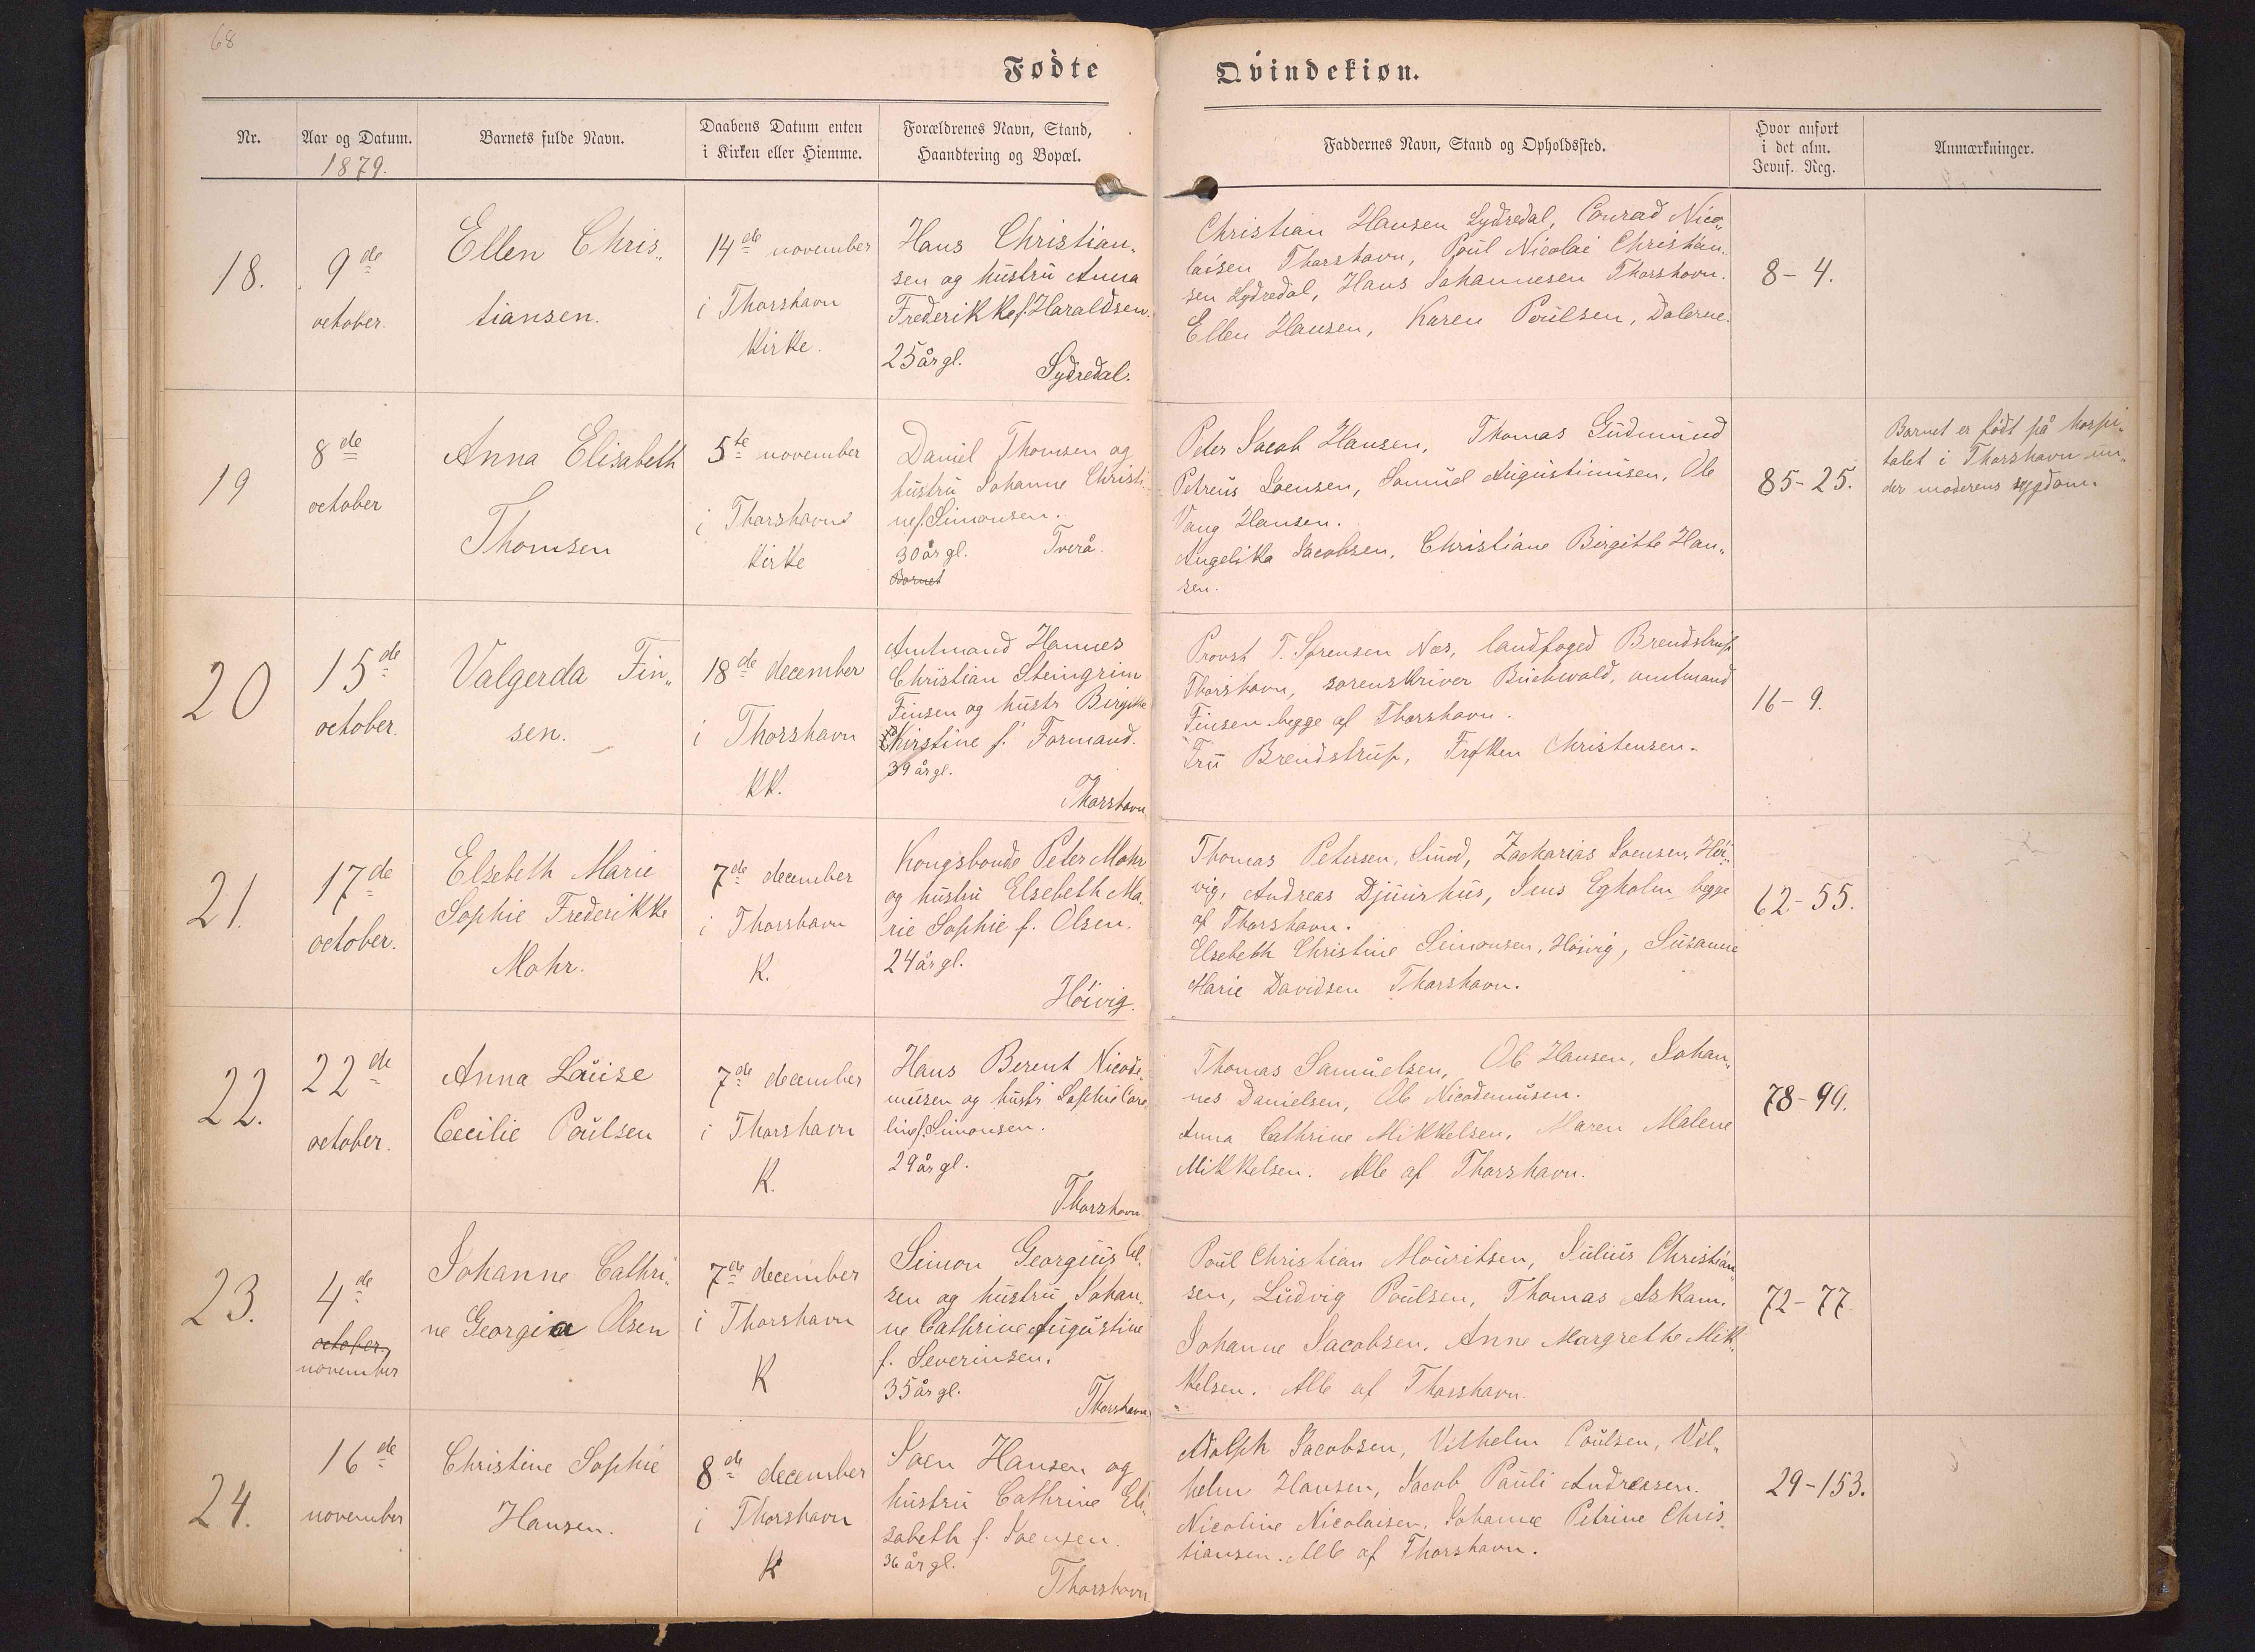 68
Fødte
Qvindekiøn.
Nr.
Aar og Datum.
1879.
Barnets fulde Navn.
Daabens Datum enten
i Kirken eller Hiemme.
Forældrenes Navn, Stand,
Haandtering og Bopæl.
Faddernes Navn, Stand og Opholdssted.
Hvor anført
i det alm.
Jevnf. Reg.
Anmærkninger.
18.
9de
october.
Ellen Chris„
tiansen.
14de november
i Thorshavn
Kirke.
Hans Christian„
sen og hustru Anna
Frederikke f. Haraldsen.
25 år gl.
Sydredal.
Christian Hansen Sydredal, Conrad Nico„
laisen Thorshavn, Poul Nicolai Christian„
sen Sydredal, Hans Johannesen Thorshavn.
Ellen Hansen, Karen Poulsen, Dalerne.
8-4.
19
8de
october
Anna Elisabeth
Thomsen
5te november
i Thorshavns
Kirke
Daniel Thomsen og
hustru Johanne Christi„
ne f. Simonsen.
30 år gl. Tverå.
Barnet
Peter Jacob Hansen, Thomas Gudmund
Petreus Joensen, Samuel Augustinusen, Ole
Vang Hansen.
Angelika Jacobsen, Christiane Birgitte Han„
sen.
85-25.
Barnet er født på hospi„
talet i Thorshavn un„
der moderens sygdom.
20
15de
october.
Valgerda Fin„
sen.
18de december
i Thorshavn
KK.
Amtmand Hannes
Christian Steingrim
Finsen og hustr Birgitte
Kirstine f. Formand.
39 år gl.
Thorshavn
Provst T. Sørensen Næs, landfoged Brendstrup
Thorshavn, sorenskriver Buchwald, amtmand
Finsen begge af Thorshavn.
Fru Brendstrup, Frøken Christensen.
16-9.
21.
17de
october.
Elsebeth Marie
Sophie Frederikke
Mohr.
7de december
i Thorshavn
K.
Kongsbonde Peter Mohr
og hustru Elsebeth Ma„
rie Sophie f. Olsen.
24 år gl.
Höivig.
Thomas Petersen, Zacharias Joensen, Höi„
vig, Andreas Djuurhus, Jens Egholm begge
af Thorshavn.
Elsebeth Christine Simonsen, Höivig, Susanne
Marie Davidsen Thorshavn.
62-55.
22.
22de
october.
Anna Louise
Cecilie Poulsen
7de december
i Thorshavn
K.
Hans Berent Nicode„
musen og hustr Sophie Caro„
line f. Simonsen.
29 år gl.
Thorshavn
Thomas Samuelsen, Ole Hansen, Johan„
nes Danielsen, Ole Nicodemusen.
Anna Cathrine Mikkelsen, Maren Malene
Mikkelsen. Alle af Thorshavn.
78-99.
23.
4de
october.
november
Johanne Cathri„
ne Georgia Olsen
7de december
i Thorshavn
K
Simon Georgius Ol„
sen og hustru Johan„
ne Cathrine Augustine
f. Severinsen.
35 år gl.
Thorshavn
Poul Christian Mouritsen, Julius Christian„
sen, Ludvig Poulsen, Thomas Askam.
Johanne Jacobsen, Anne Margrethe Mik„
kelsen. Alle af Thorshavn.
72-77
24.
16de
november
Christine Sophie
Hansen.
8de december
i Thorshavn
K
Joen Hansen og
hustru Cathrine Eli„
sabeth f. Joensen.
36 år gl.
Thorshavn.
Adolph Jacobsen, Vilhelm Poulsen, Vil„
helm Hansen, Jacob Pauli Andreasen.
Nicoline Nicolaisen, Johanne Petrine Chris„
tiansen. Alle af Thorshavn.
29-153.